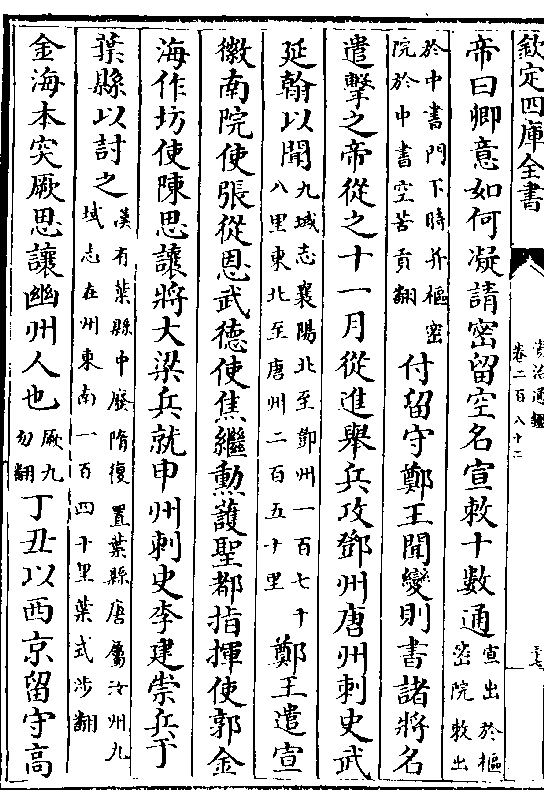 欽定四庫全書
資治通鑑
卷二百八十二
帝曰卿意如何凝請密留空名宣敕十數通宣出於樞密院敕出
於中書門下時并樞密院於中書空苦貢翻付留守鄭王聞變則書諸將名
遣擊之帝從之十一月從進舉兵攻鄧州唐州刺史武
延翰以聞九域志襄陽北至鄧州一百七十八里東北至唐州二百五十里鄭王遣宣
徽南院使張從恩武德使焦繼勳護聖都指揮使郭金
海作坊使陳思讓將大梁兵就申州刺史李建崇兵于
葉縣以討之漢有葉縣中廢隋復置葉縣唐屬汝州九域志在州東南一百四十里葉式涉翻
金海本突厥思讓幽州人也厥九勿翻丁丑以西京留守高